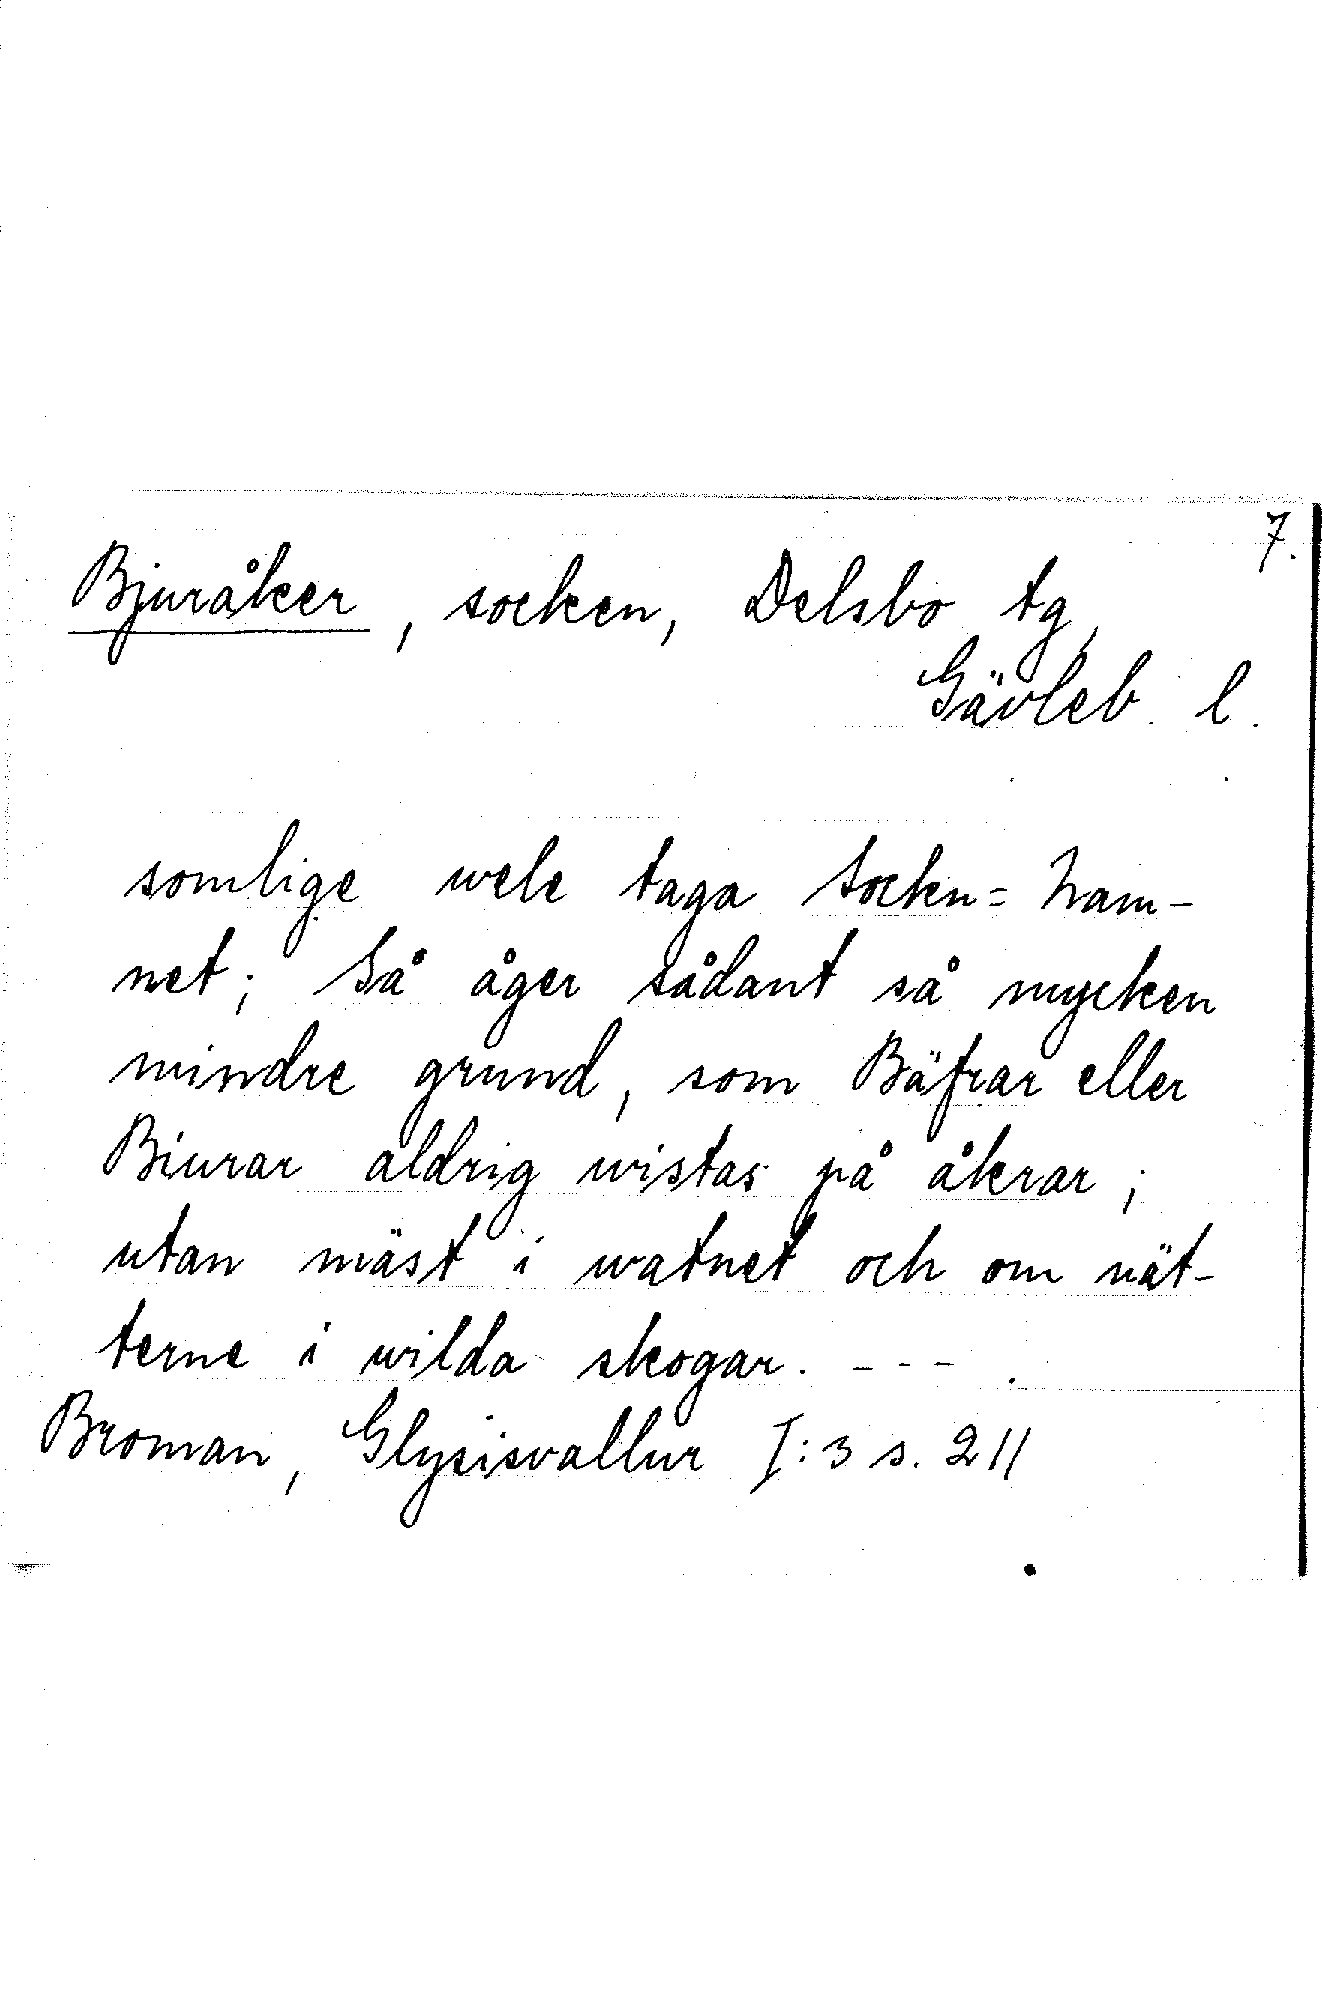 7.
Bjuråker, socken, Delsbo tg,
Gävleb. l.
somlige wele taga Sockn= Nam-
net; Så åger sådant så mycken
mindre grund, som Bäfrar eller
Biurar aldrig wistas på åkrar;
utan mäst i watnet och om nät-
terne i wilda skogar. - - - .
Broman, Glysisvallur I:3 s. 211